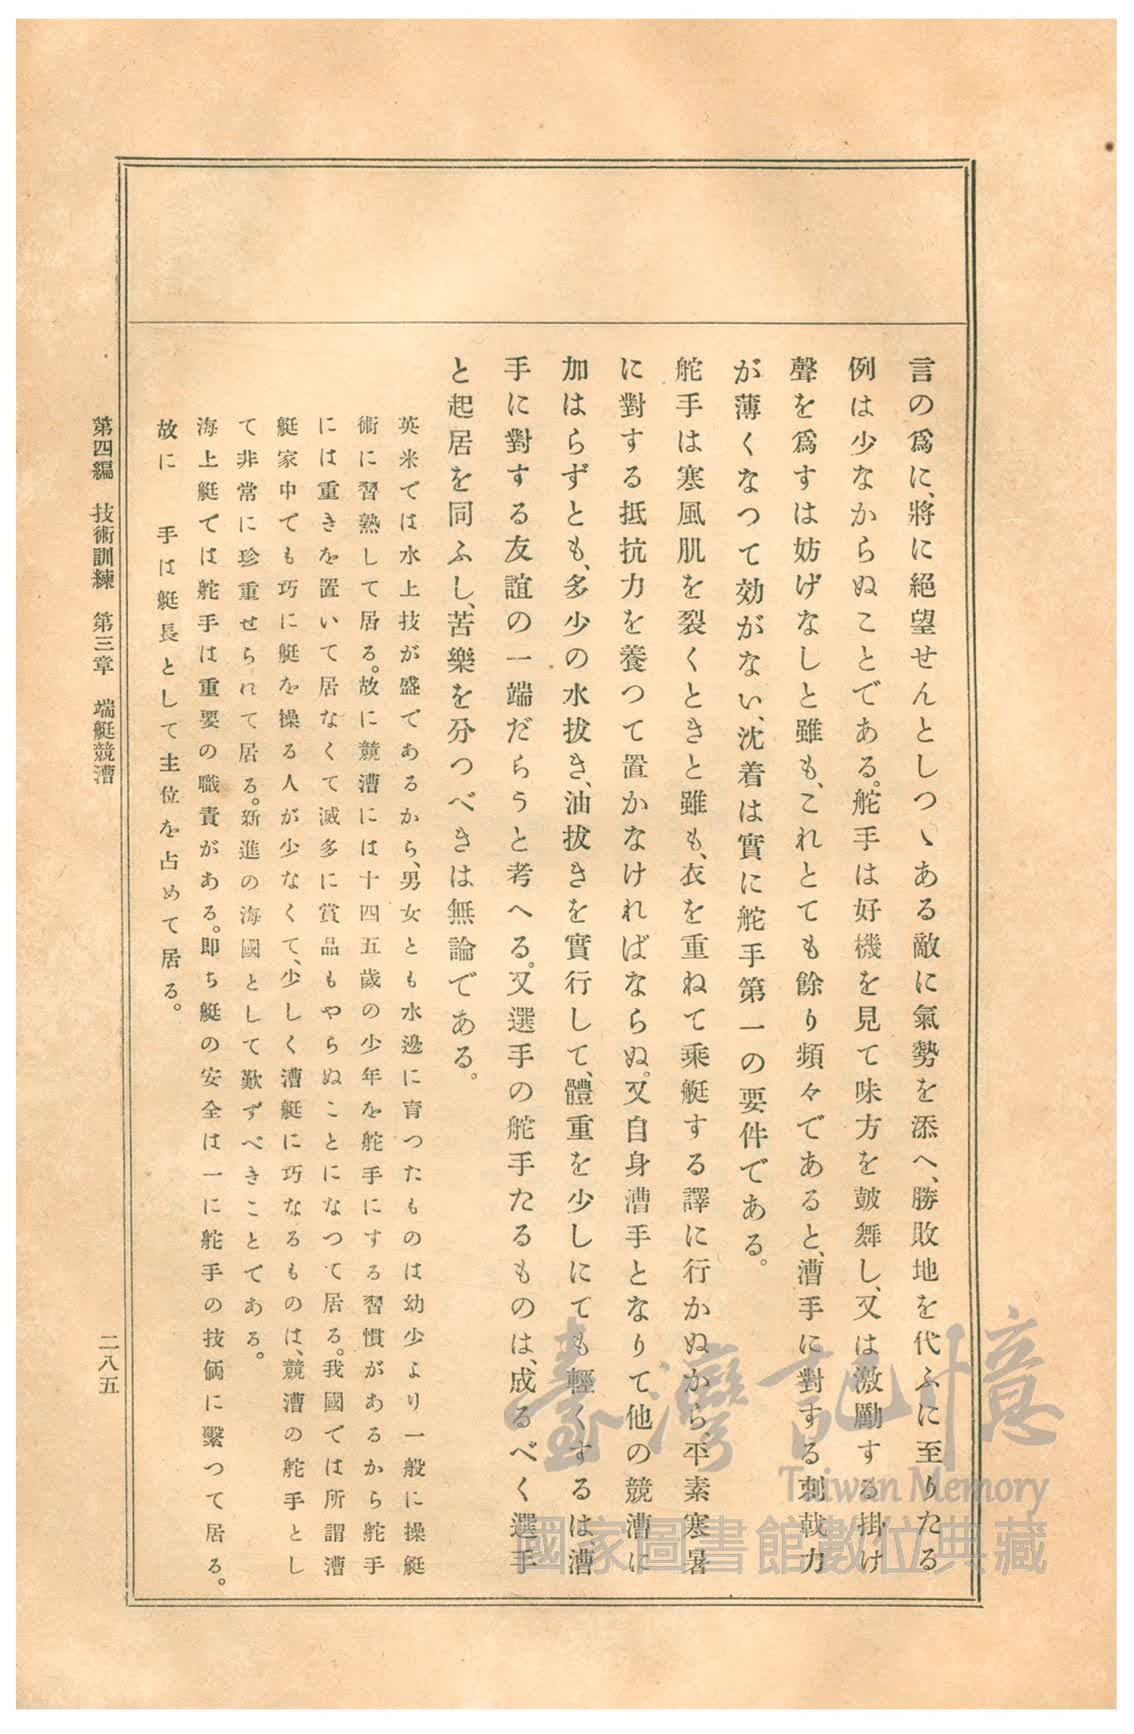 言の爲に、將に絕望せんとしつゝある敵に氣勢を添へ、勝敗地を代ふに至りたる
例は少なからぬことである。舵手は好機を見て味方を皷舞し、又は激勵する掛け
聲を爲すは妨げなしと雖も、これとても餘り頻々であると、漕手に對する刺戟力
が薄くなつて効がない、沈着は實に舵手第一の要件である。
舵手は寒風肌を裂くときと雖も、衣を重ねて乘艇する譯に行かぬから、平素寒暑
に對する抵抗力を養つて置かなければならぬ。又自身漕手となりて他の競漕に
加はらずとも、多少の水拔き、油拔きを實行して、體重を少しにても輕くするは漕
手に對する友誼の一端だらうと考へる。又選手の舵手たるものは、成るべく選手
と起居を同ふし、苦樂を分つべきは無論である。
英米では水上技が盛であるから、男女とも水邊に育つたものは幼少より一般に操艇
術に習熟して居る。故に競漕には十四五歲の少年を舵手にする習慣があるから舵手
には重きを置いて居なくて滅多に賞品もやらぬことになつて居る。我國では所謂漕
艇家中でも巧に艇を操る人が少なくて、少しく漕艇に巧なるものは、競漕の舵手とし
て非常に珍重せられて居る。新進の海國として歎ずべきことである。
海上艇では舵手は重要の職責がある。卽ち艇の安全は一に舵手の技倆に繫つて居る。
故に　手は艇長として主位を占めて居る。
第四編　技術訓練　第三章　端艇競漕
二八五
臺灣記憶
Taiwan Memory
國家圖書館數位典藏